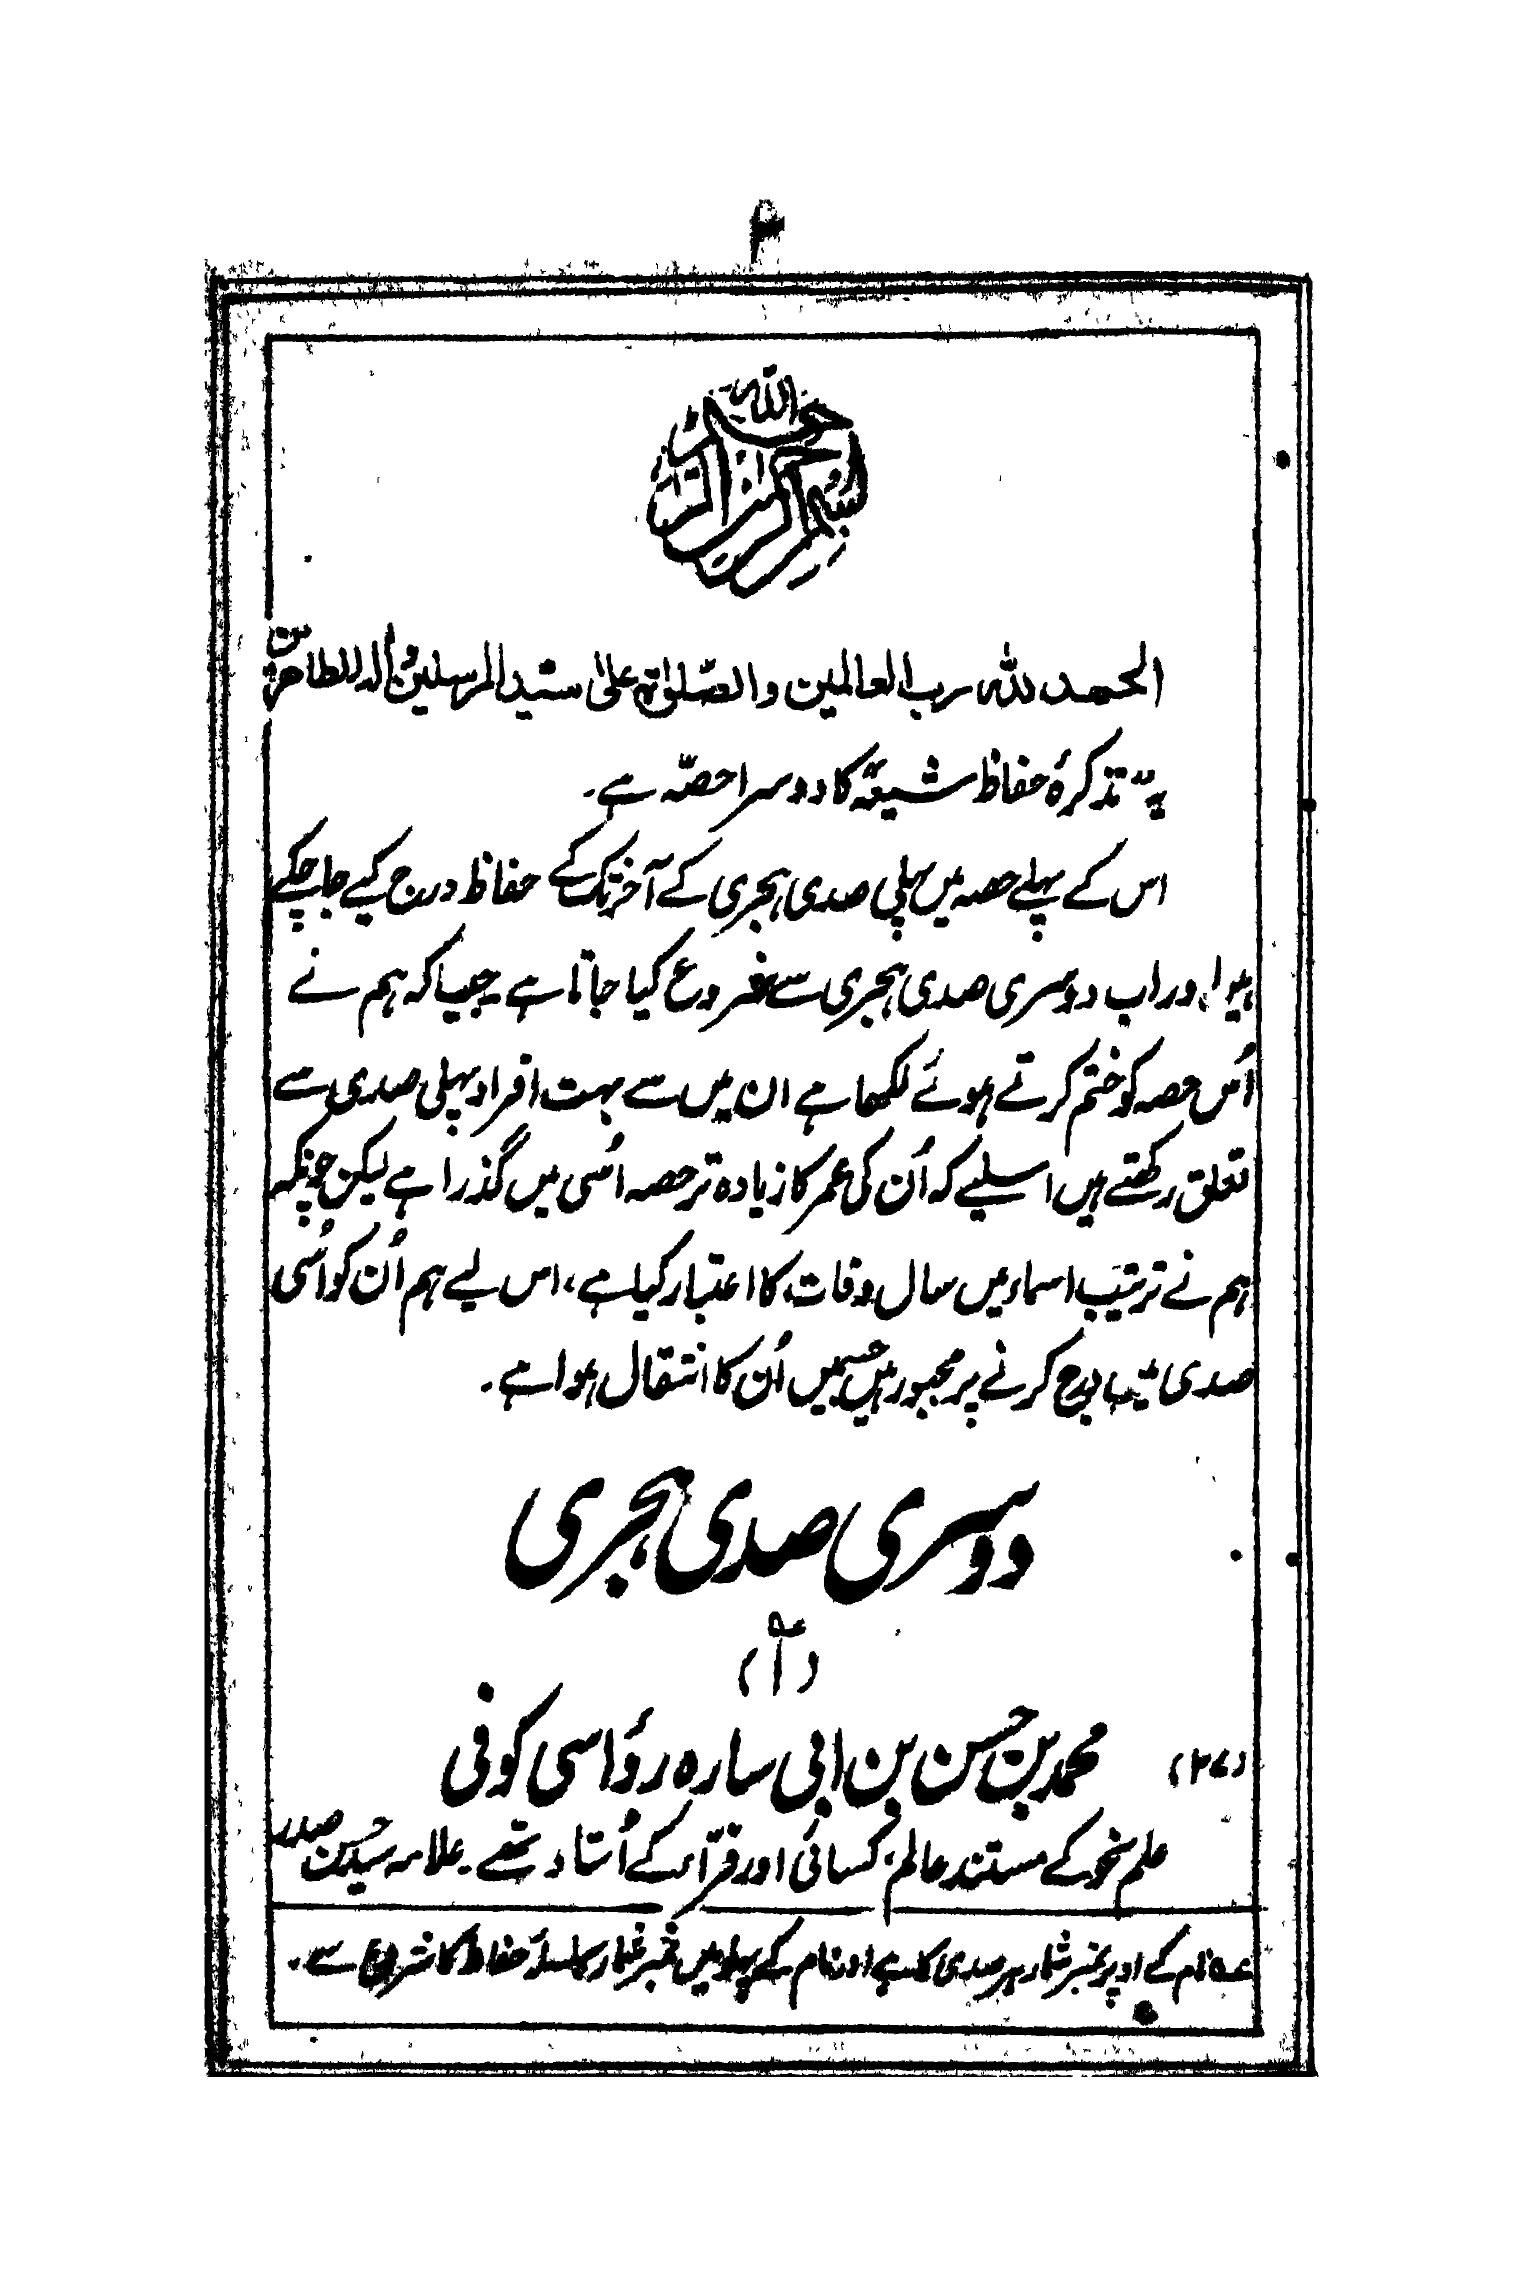 ۲
بسم الله الرحمن الرحيم
الحمد للہ رب العالمین والصّلوٰۃ علیٰ سیّد المرسلین وآلہ الطاھرین
یہ "تذکرۂ حفاظ شیعہ" کا دوسرا حصّہ ہے۔
اس کے پہلے حصہ میں پہلی صدی ہجری کے آخر تک کے حفاظ درج کیے جاچکے
ہیں اور اب دوسری صدی ہجری سے شروع کیا جاتا ہے۔ جیسا کہ ہم نے
اُس حصہ کو ختم کرتے ہوئے لکھا ہے ان میں سے بہت افراد پہلی صدی سے
تعلق رکھتے ہیں اسلیے کہ اُن کی عمر کا زیادہ تر حصہ اُسی میں گذرا ہے لیکن چونکہ
ہم نے ترتیب اسماء میں سال وفات کا اعتبار کیا ہے، اس لیے ہم اُن کو اُسی
صدی میں درج کرنے پر مجبور ہیں جسمیں اُن کا انتقال ہوا ہے۔
دوسری صدی ہجری
(۱) عہ
(۲۷) محمد بن حسن بن ابی سارہ رؤاسی کوفی
علم نحو کے مستند عالم، کسائی اور فرّاء کے اُستاد تھے۔ علامہ سید حسن صدر
عہ نام کے اوپر نمبر شمار ہر صدی کا ہے اور نام کے پہلو میں نمبر شمار سلسلۂ حفاظ کا شروع سے۔